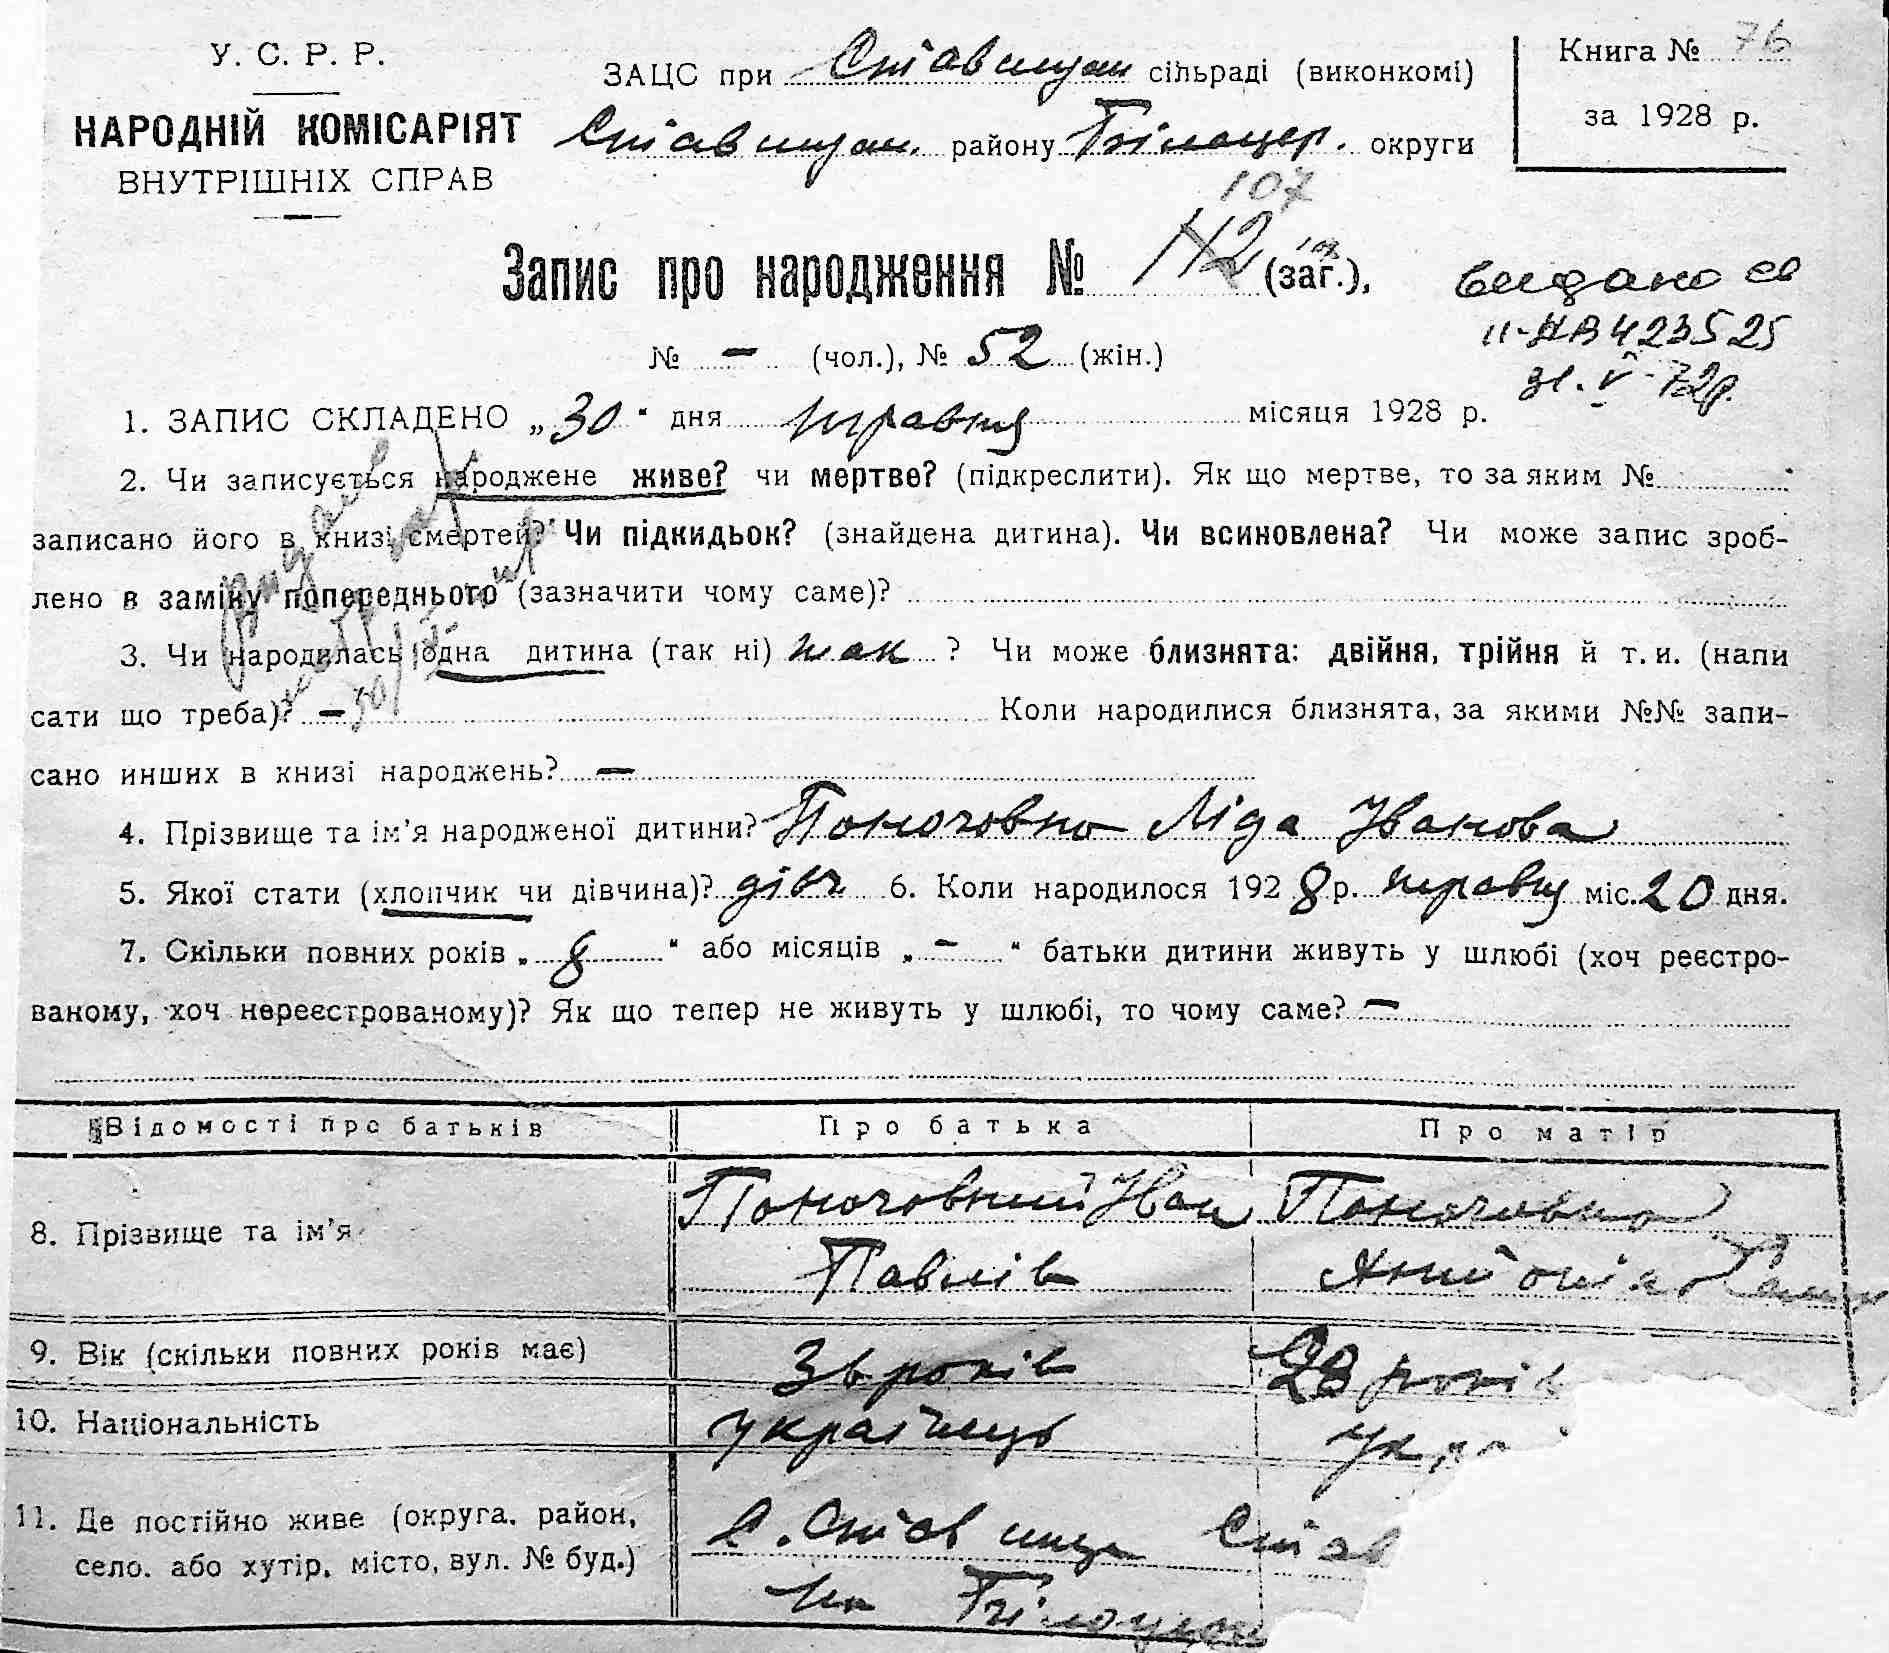 У. С. Р. Р.
НАРОДНІЙ КОМІСАРІЯТ
ВНУТРІШНІХ СПРАВ
ЗАЦС при Ставищан сільраді (виконкомі)
Ставищан. району Білоцер. округи
Книга № 76
за 1928 р.
107
Запис про народження № 112 (заг.),
№ — (чол.), № 52 (жін.)
видано св
II-АВ 423525
31.V-72р.
1. ЗАПИС СКЛАДЕНО „30" дня травня місяця 1928 р.
2. Чи записується народжене живе? чи мертве? (підкреслити). Як що мертве, то за яким №
записано його в книзі смертей? Чи підкидьок? (знайдена дитина). Чи всиновлена? Чи може запис зроб-
лено в заміну попереднього (зазначити чому саме)?
3. Чи народилась одна дитина (так ні) так ? Чи може близнята: двійня, трійня й т. и. (напи
сати що треба)? —
Коли народилися близнята, за якими №№ запи-
сано инших в книзі народжень? —
4. Прізвище та ім'я народженої дитини? Поночовно Ліда Іванова
5. Якої стати (хлопчик чи дівчина)? дівч 6. Коли народилося 1928 р. травня міс. 20 дня.
7. Скільки повних років „8" або місяців „—" батьки дитини живуть у шлюбі (хоч реєстро-
ваному, хоч нереєстрованому)? Як що тепер не живуть у шлюбі, то чому саме? —
Відомості про батьків Про батька Про матір
8. Прізвище та ім'я Поночовний Іван Поночовно
Павлів Антоніна
9. Вік (скільки повних років має) 36 років 28 років
10. Національність українець Укр
11. Де постійно живе (округа, район,
село, або хутір, місто, вул. № буд.)
с. Ставище Став
на Білоцер